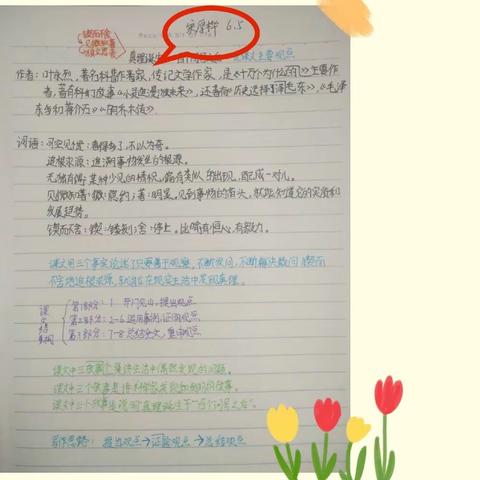 宋厚梓 6.5
锲而不舍
见微知著
真理诞生 课文主要观点
作者:叶永烈,著名科普作者家,传记文学作家,是《十万个为什么的》主要作
者,著有科幻故事《小灵通漫游未来》,还著有《历史选择了毛泽东》、《毛泽
东与和蒋介石》
词语:司空见惯:看得多了,不以为奇。
追根求源:追溯事物发生的根源。
无独有偶:某种少见的情况,偏有类似的出现,配成一对儿。
见微知著:微:隐约;著:明显。见到事物的苗头,就能知道它的实质和
发展趋势。
锲而不舍:锲:镂刻;舍:停止。比喻有恒心,有毅力。
课文用三个事实论述了只要善于观察,不断发问,不断解决疑问,锲而
不舍地追根求源,就能在现实生活中发现真理。
课文结构
第1部分:1 开门见山,提出观点
第2部分:2-6 运用事例,证明观点
第3部分:7-8 总结全文,重申观点
课文中三个 生活中偶然发现的问题。
课文中三个故事是
课文中三个故事 真理诞生于“百个问号之后”。
写作思路:提出观点→证验观点→总结观点